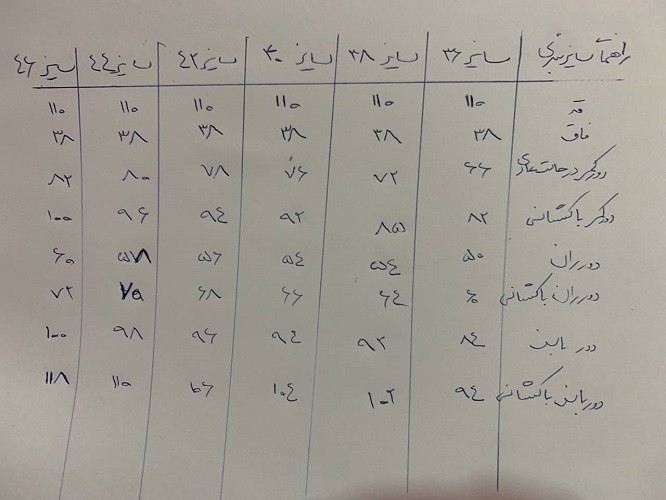 راهنمای سایزبندی سایز ۳۶ سایز ۳۸ سایز ۴۰ سایز ۴۲ سایز ۴۴ سایز ۴۶
قد ۱۱۰ ۱۱۰ ۱۱۰ ۱۱۰ ۱۱۰ ۱۱۰
فاق ۳۸ ۳۸ ۳۸ ۳۸ ۳۸ ۳۸
دور کمر در حالت عادی ۶۶ ۷۲ ۷۶ ۷۸ ۸۰ ۸۲
دور کمر با کشسانی ۸۲ ۸۵ ۹۲ ۹۴ ۹۶ ۱۰۰
دور ران ۵۰ ۵۴ ۵۴ ۵۶ ۵۸ ۶۰
دور ران با کشسانی ۶۰ ۶۴ ۶۶ ۶۸ ۷۵ ۷۲
دور باسن ۸۴ ۹۲ ۹۴ ۹۶ ۹۸ ۱۰۰
دور باسن با کشسانی ۹۴ ۱۰۲ ۱۰۴ ۱۱۰ ۱۱۸